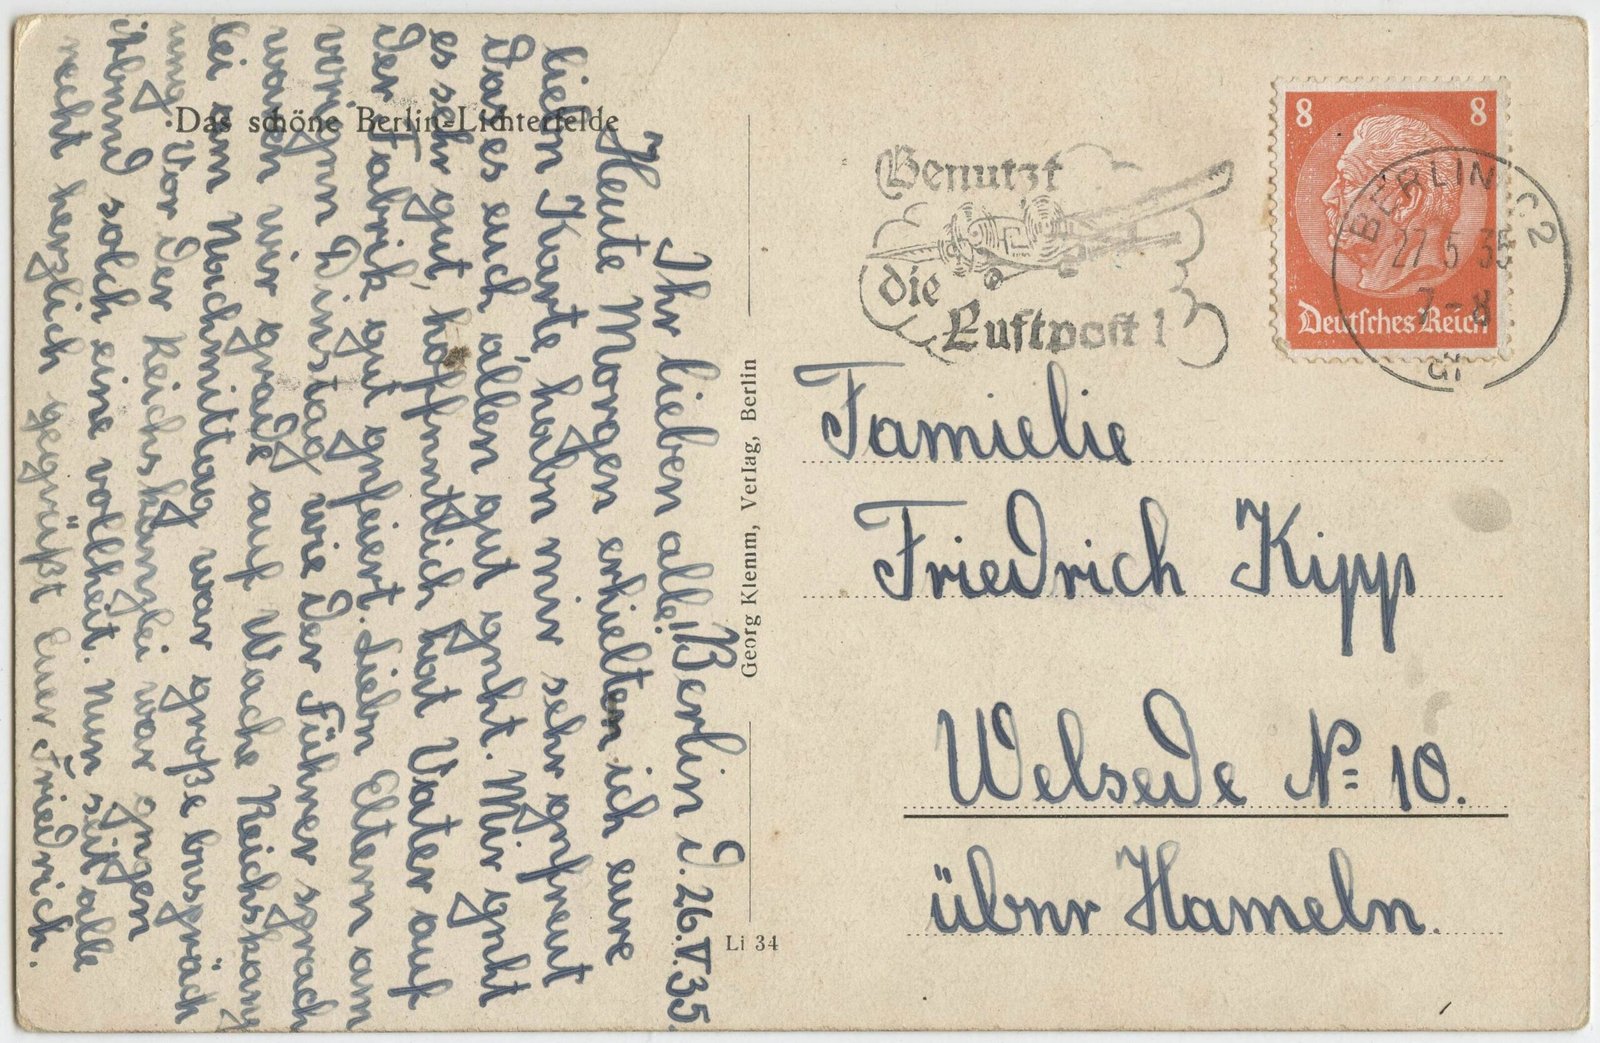 Das schöne Berlin-Lichterfelde
Berlin d. 26.V.35.
Ihr lieben alle!
Heute Morgen erhielten ich eure
lieben Karte habn mir sehr gefreut
dases euch allen gut geht. Mir geht
es sehr gut, hoffentlich hat Vater auf
der Fabrik gut gefeiert. Liebn Eltern am
vorigen Dinstag wie der Führer sprach
waren wir grade auf Wache Reichskanz
lei am Nachmittag war große besgräch
ung vor der Reichskanzlei war gegen
Abend solch eine vollheit. Nun seit alle
recht herzlich gegrüßt Euer Friedrich.
Georg Klemm, Verlag, Berlin
Li 34
Benutzt
die
Luftpost!
8 8
Deutsches Reich
BERLIN C2
27.5.35
7-8
Famielie
Friedrich Kipp
Welsede No 10.
über Hameln.